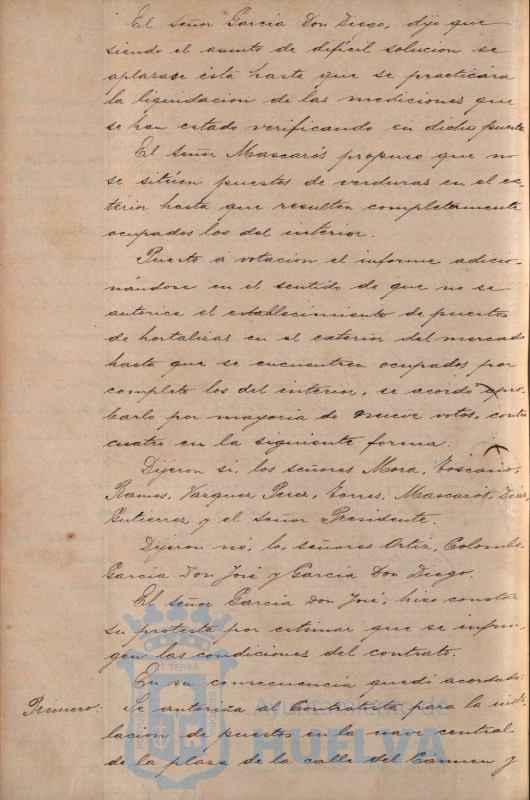 El señor Garcia Don Diego, dijo que
siendo el asunto de dificil solucion se
aplazase ésta hasta que se practicára
la liquidacion de las mediciones que
se han estado verificando en dicho puesto
El señor Mascarós propuso que no
se sitúen puestos de verduras en el ex
terior hasta que resulten completamente
ocupados los del interior.
Puesto á votacion el informe adicio-
nándose en el sentido de que no se
autorice el establecimiento de puestos
de hortalizas en el exterior del mercado
hasta que se encuentren ocupados por
completo los del interior, se acordó apro-
barlo por mayoria de nueve votos, contra
cuatro en la siguiente forma.
Dijeron si, los señores Mora, Toscano,
Ramos, Vazquez Perez, Torres, Mascarós, Diaz,
Gutierrez, y el señor Presidente.
Dijeron nó, los señores Ortiz, Colombo,
Garcia Don José y Garcia Don Diego.
El señor Garcia Don José, hizo constar
su protesta por estimar que se infrin-
gen las condiciones del contrato.
En su consecuencia quedó acordado:
Primero: Se autoriza al Contratista para la insta
lacion de puestos en la nave central
de la plaza de la calle del Cármen y
Ayuntamiento de
HUELVA